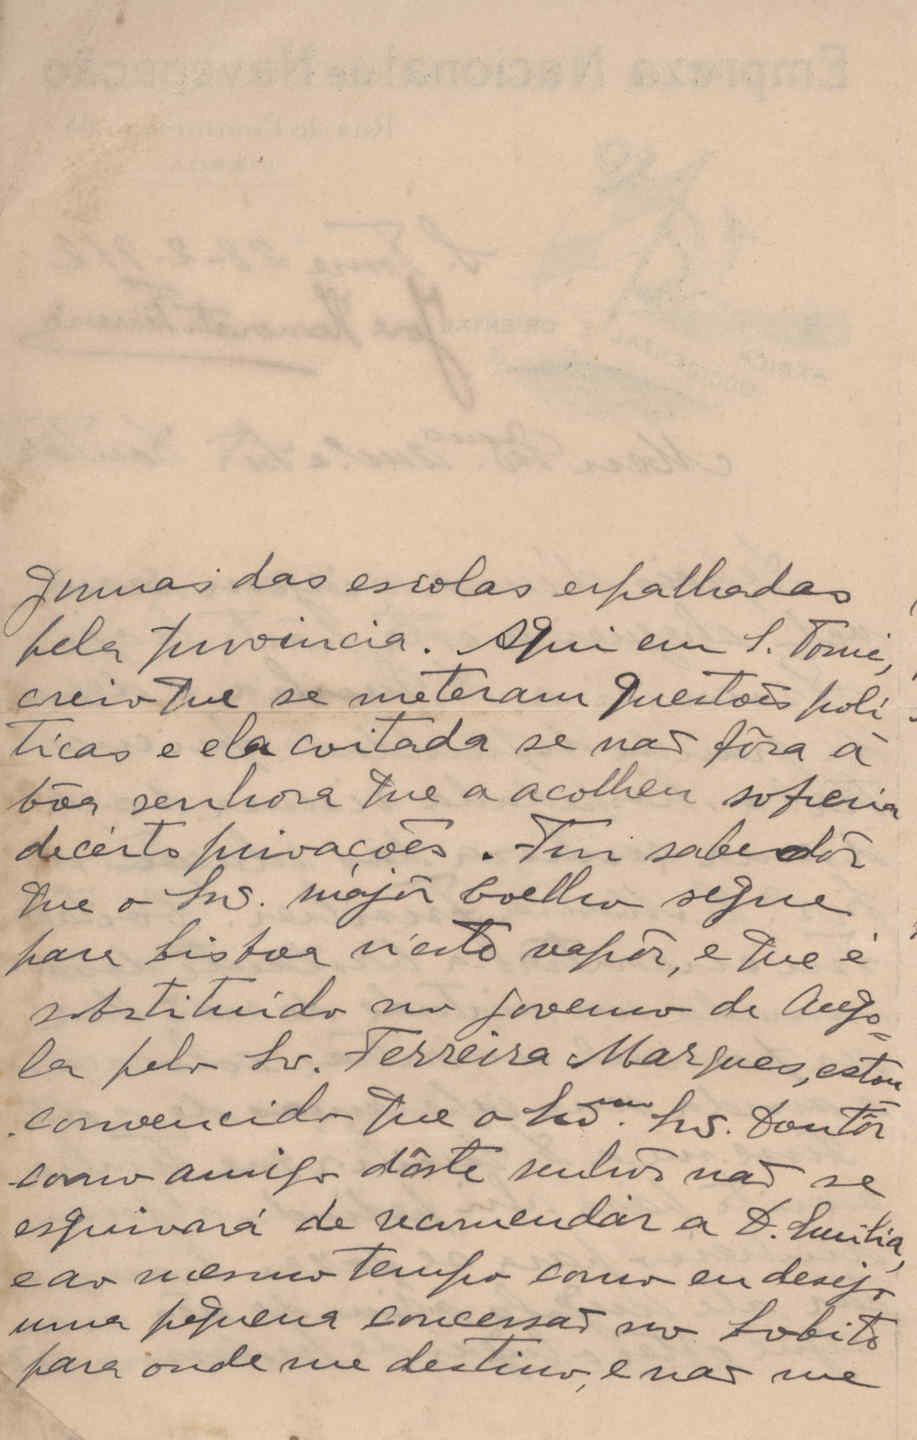 numas das escolas espalhadas
pela provincia. Aqui em S. Tomé,
creio que se meteram questoês poli
ticas e ela coitada se naõ fôra a
bôa senhora que a acolheu sofreria
decérto privaçoês. Fui sabedôr
que o Snr. májôr Coelho segue
para Lisboa n'esto vapôr, e que é
substituido no governo de Ango=
la pelo Sr. Ferreira Marques, estou
convencido que o Snr. Doutôr
como amigo dêste senhôr naõ se
esquivará de recomendár a D. Emilia,
e ao mesmo tempo como eu desejo
uma pequena concessaõ no Lobito
para onde me destino, e naõ me